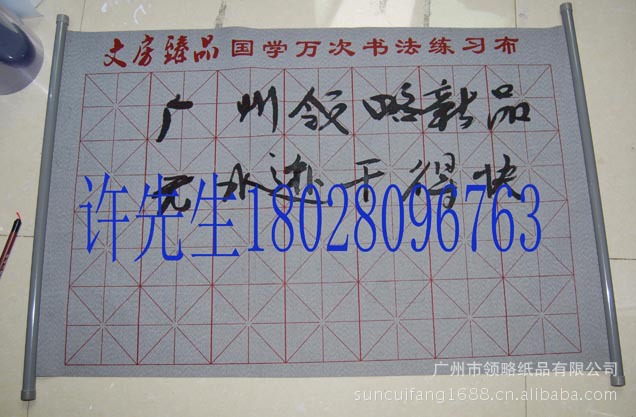 文房臻品国学万次书法练习布
广州领略新品
无水迹干得快
许先生18028096763
广州市领略纸品有限公司
suncuifang1688.cn.alibaba.com